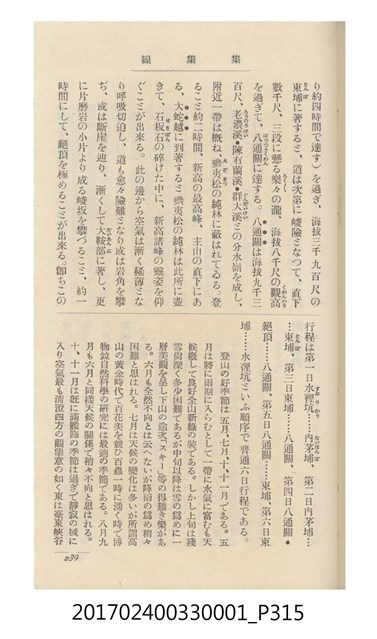 集集線
り約四時間で達す）を過ぎ、海拔三千九百尺の
東埔に著すると、道は次第に峻險となつて、直下
數千尺、三段に懸る樂々の瀧、海拔八千尺の觀高
を過ぎて、八通關に達する。八通關は海拔九千三
百尺、老濃溪、陳有蘭溪、群大溪との分水嶺を成し、
附近一帶は概ね蝦夷松の純林に蔽はれてゐる。登
ること約二時間、新高の最高峰、主山の直下にあ
る、大蛇越に到著すると蝦夷松の純林は此所に盡
きて、石板石の碎けた中に、新高諸峰の雄姿を仰
ぐことが出來る。此の邊から空氣は漸く稀薄とな
り呼吸切迫し、道も愈々險難となり或は岩角を攀
ぢ、或は斷崖を辿り、漸くして大鞍部に著し、更
に片磨岩の小片より成る峻坂を攀づること、約一
時間にして、絕頂を極めることが出來る。卽ちこの
行程は第一日水裡坑…內茅埔、第二日內茅埔…
…東埔、第三日東埔……八通關、第四日八通關…
絕頂……八通關、第五日八通關……東埔、第六日東
埔……水裡坑といふ順序で普通六日行程である。
登山の好季節は五月、七月、十、十一月である。五
月は將に雨期に入らむとして一帶に水氣に富むも天
候槪して良好全山新綠の裝である。しかし上旬は殘
雪尙深く多少困難であるが中旬以降は雪の爲めに一
層美觀を呈し下山の途次「スキー」等の得難き樂があ
る。六月も全然不向とは云へないが降雨の爲め稍々
困難と思はれる。七月は天候の變化は多いが所謂高
山の黃金時代で百花美を競ひ百蟲一時に湧く時で博
物竝自然科學の研究には最適の季節である。八月九
月も六月と同樣天候の關係で稍々不向と思はれる。
十、十一月は旣に滿觀飾の季節は過ぎて靜寂の域に
入り空氣最も淸澄四方の觀望意の如く東は臺東峽谷
239
201702400330001_P315